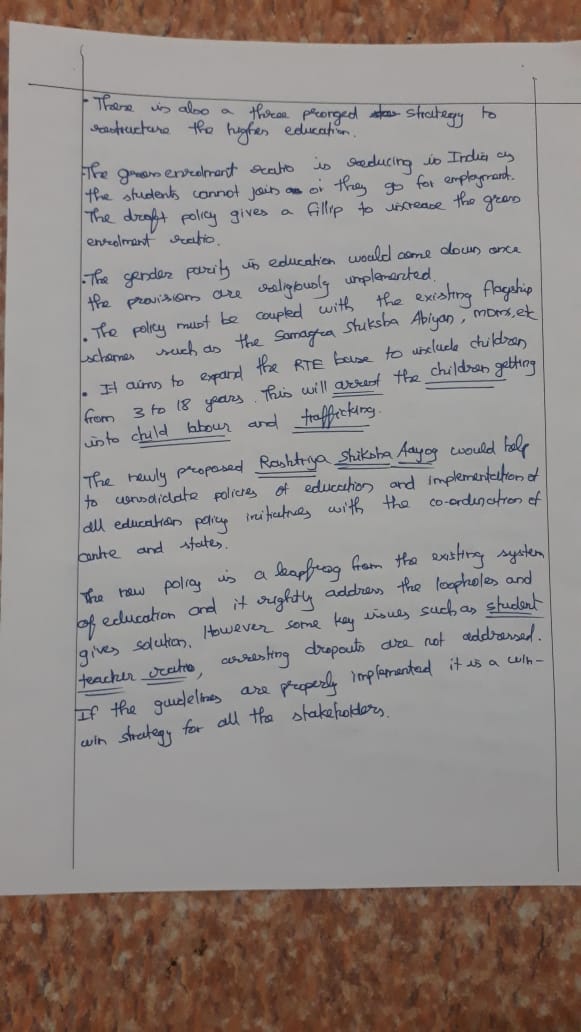 • There is also a three pronged strategy to
restructure the higher education.
The gross enrolment ratio is reducing in India as
the students cannot join or they go for employment.
The draft policy gives a fillip to increase the gross
enrolment ratio.
• The gender parity in education would come down once
the provisions are religiously implemented.
• The policy must be coupled with the existing flagship
schemes such as the Samagra Shiksha Abiyan, MDMS, etc
• It aims to expand the RTE base to include children
from 3 to 18 years. This will arrest the children getting
into child labour and trafficking.
The newly proposed Rashtriya Shiksha Aayog would help
to consolidate policies of education and implementation of
all education policy initiatives with the co-ordination of
centre and states.
The new policy is a leapfrog from the existing system
of education and it rightly address the loopholes and
gives solution. However some key issues such as student
teacher ratio, arresting dropouts are not addressed.
If the guidelines are properly implemented it is a win-
win strategy for all the stakeholders.